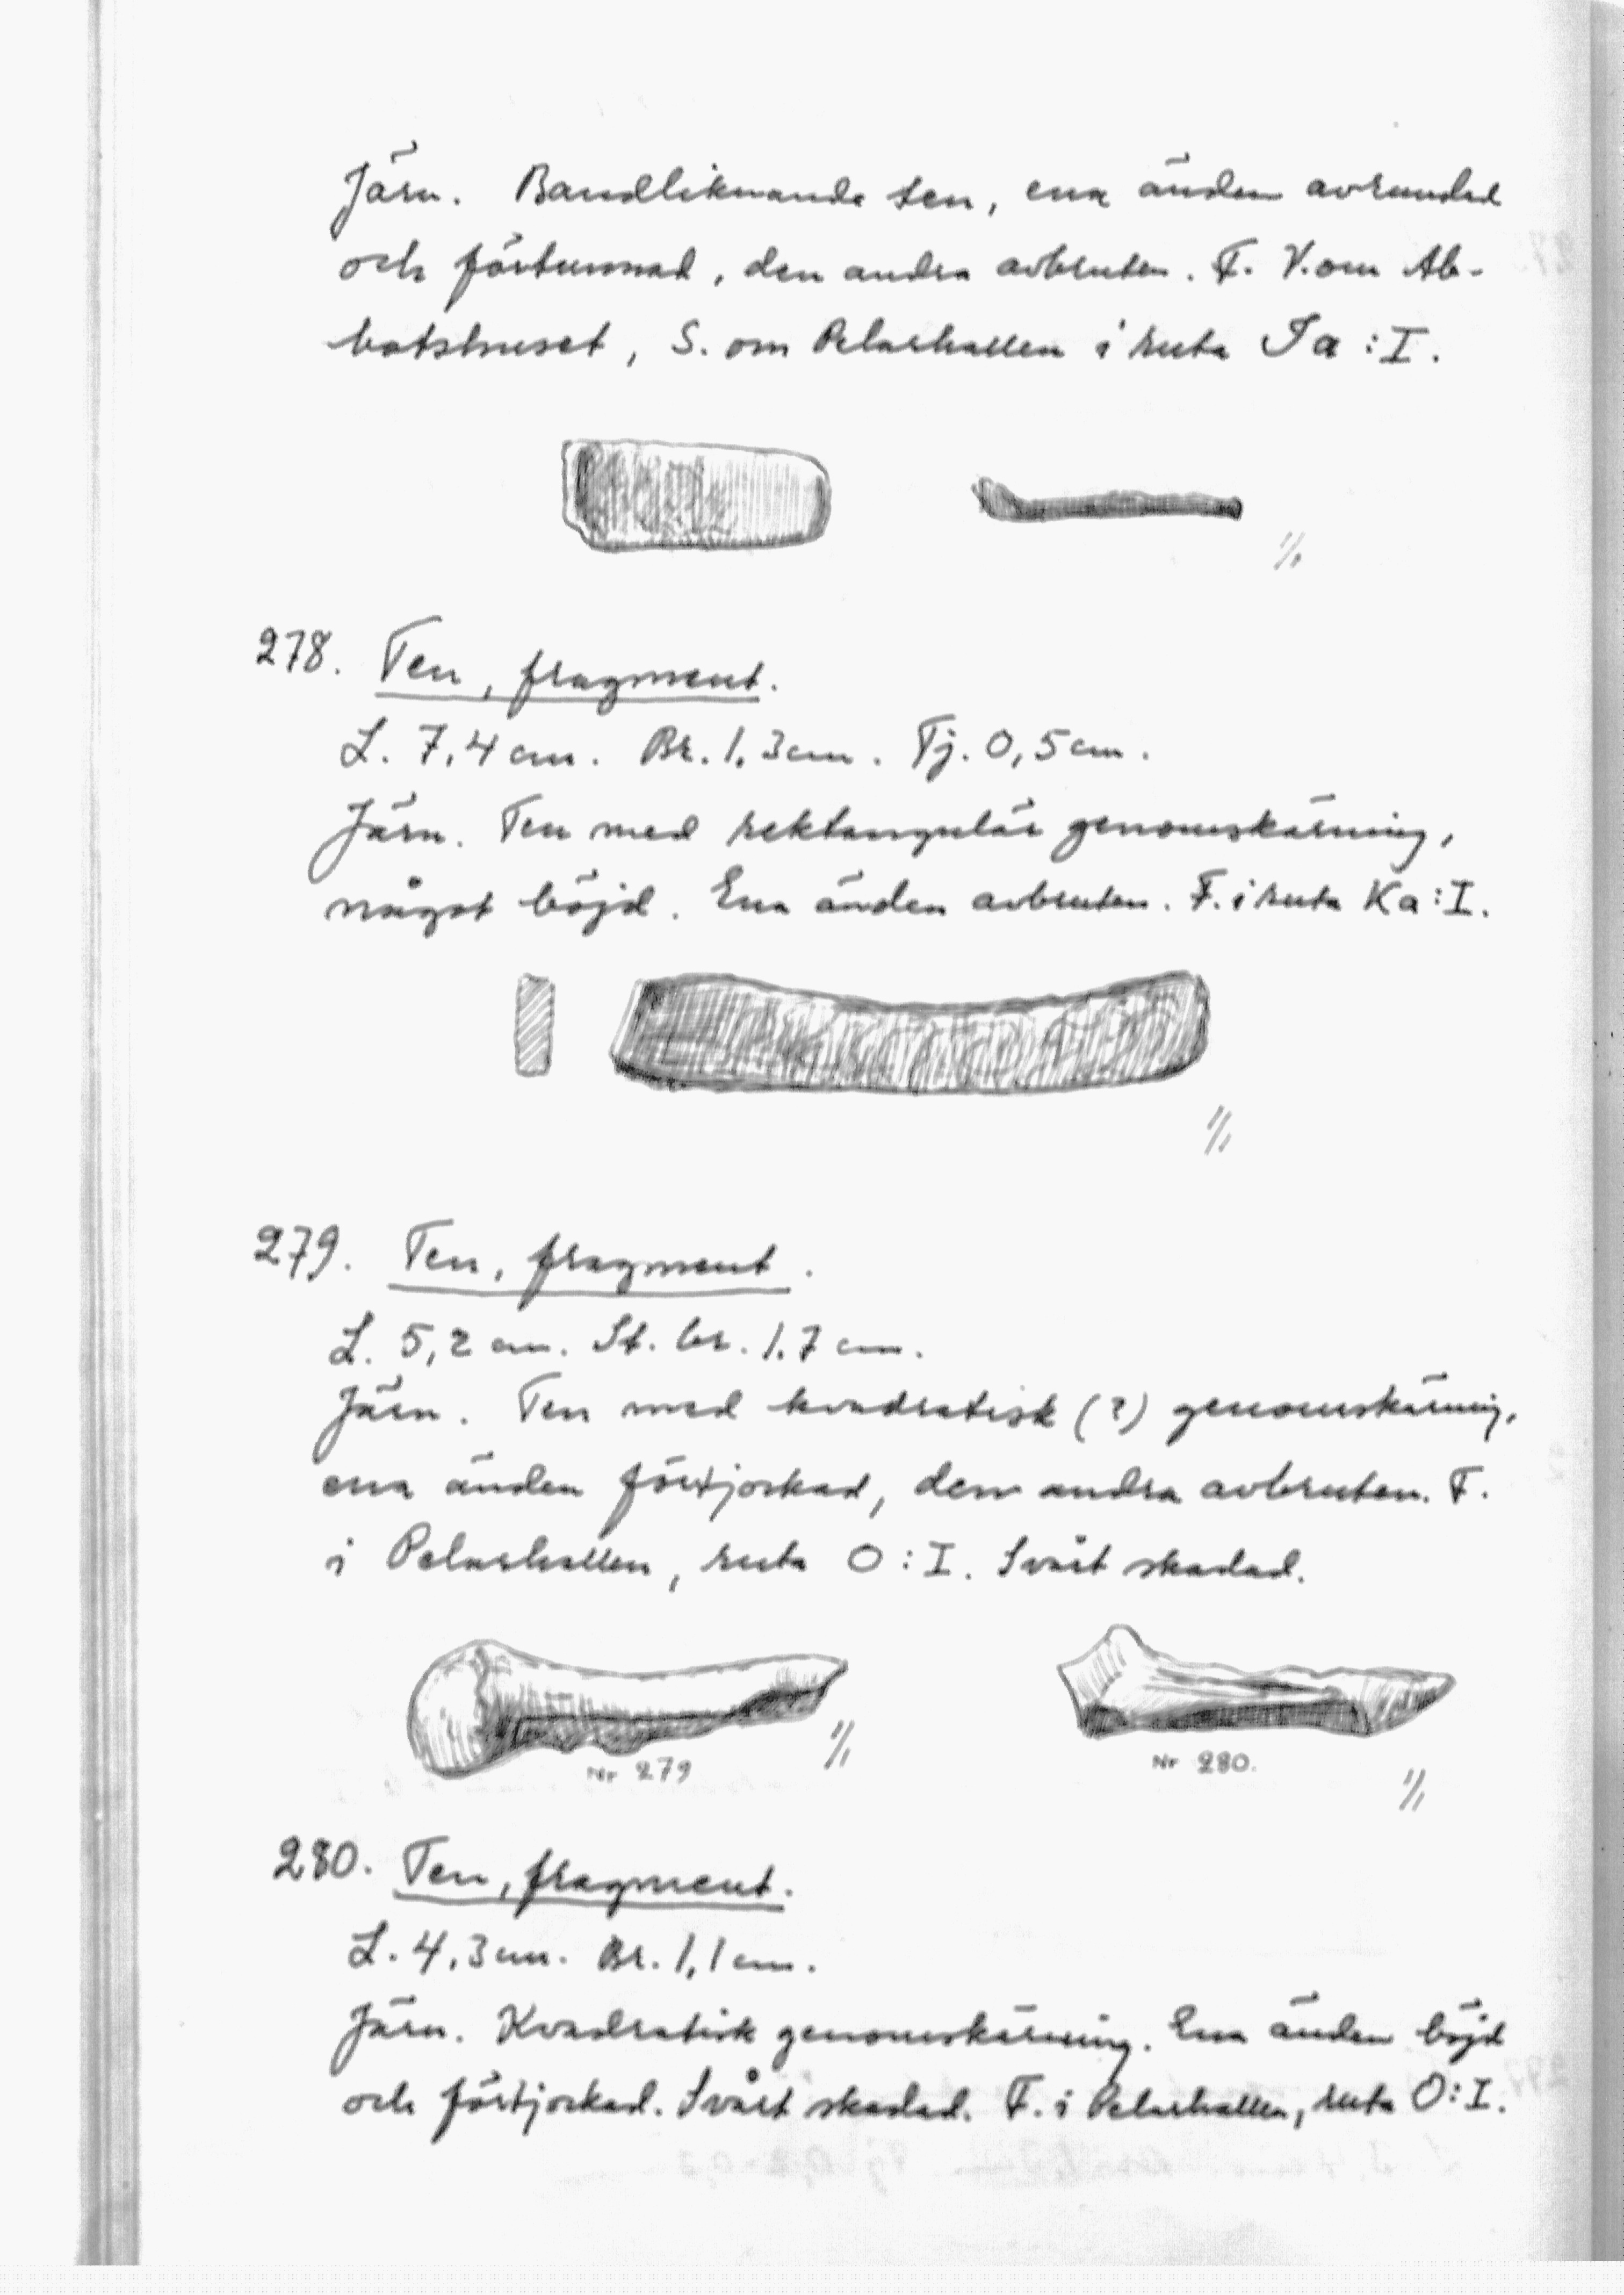 Järn. Bandliknande ten, ena änden avrundad
och förtunnad, den andra avbruten. F. V. om Ab-
botshuset, S. om Pelarhallen i ruta Ja:I.
1/1
278. Ten, fragment.
L. 7,4 cm. Br. 1,3 cm. Tj. 0,5 cm.
Järn. Ten med rektangulär genomskärning,
något böjd. Ena änden avbruten. F. i ruta Ka:I.
1/1
279. Ten, fragment.
L. 5,2 cm. St. br. 1,7 cm.
Järn. Ten med kvadratisk (?) genomskärning,
ena änden förtjockad, den andra avbruten. F.
i Pelarhallen, ruta O:I. Svårt skadad.
Nr 279 1/1
Nr 280. 1/1
280. Ten, fragment.
L. 4,3 cm. Br. 1,1 cm.
Järn. Kvadratisk genomskärning. Ena änden böjd
och förtjockad. Svårt skadad. F. i Pelarhallen, ruta O:I.